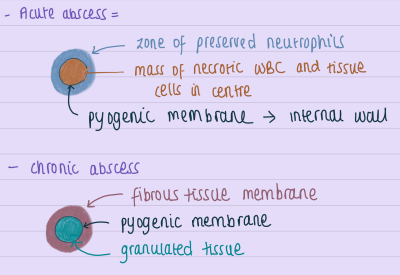 - Acute abscess =
zone of preserved neutrophils
mass of necrotic WBC and tissue
cells in centre
pyogenic membrane → internal wall
- chronic abscess
fibrous tissue membrane
pyogenic membrane
granulated tissue